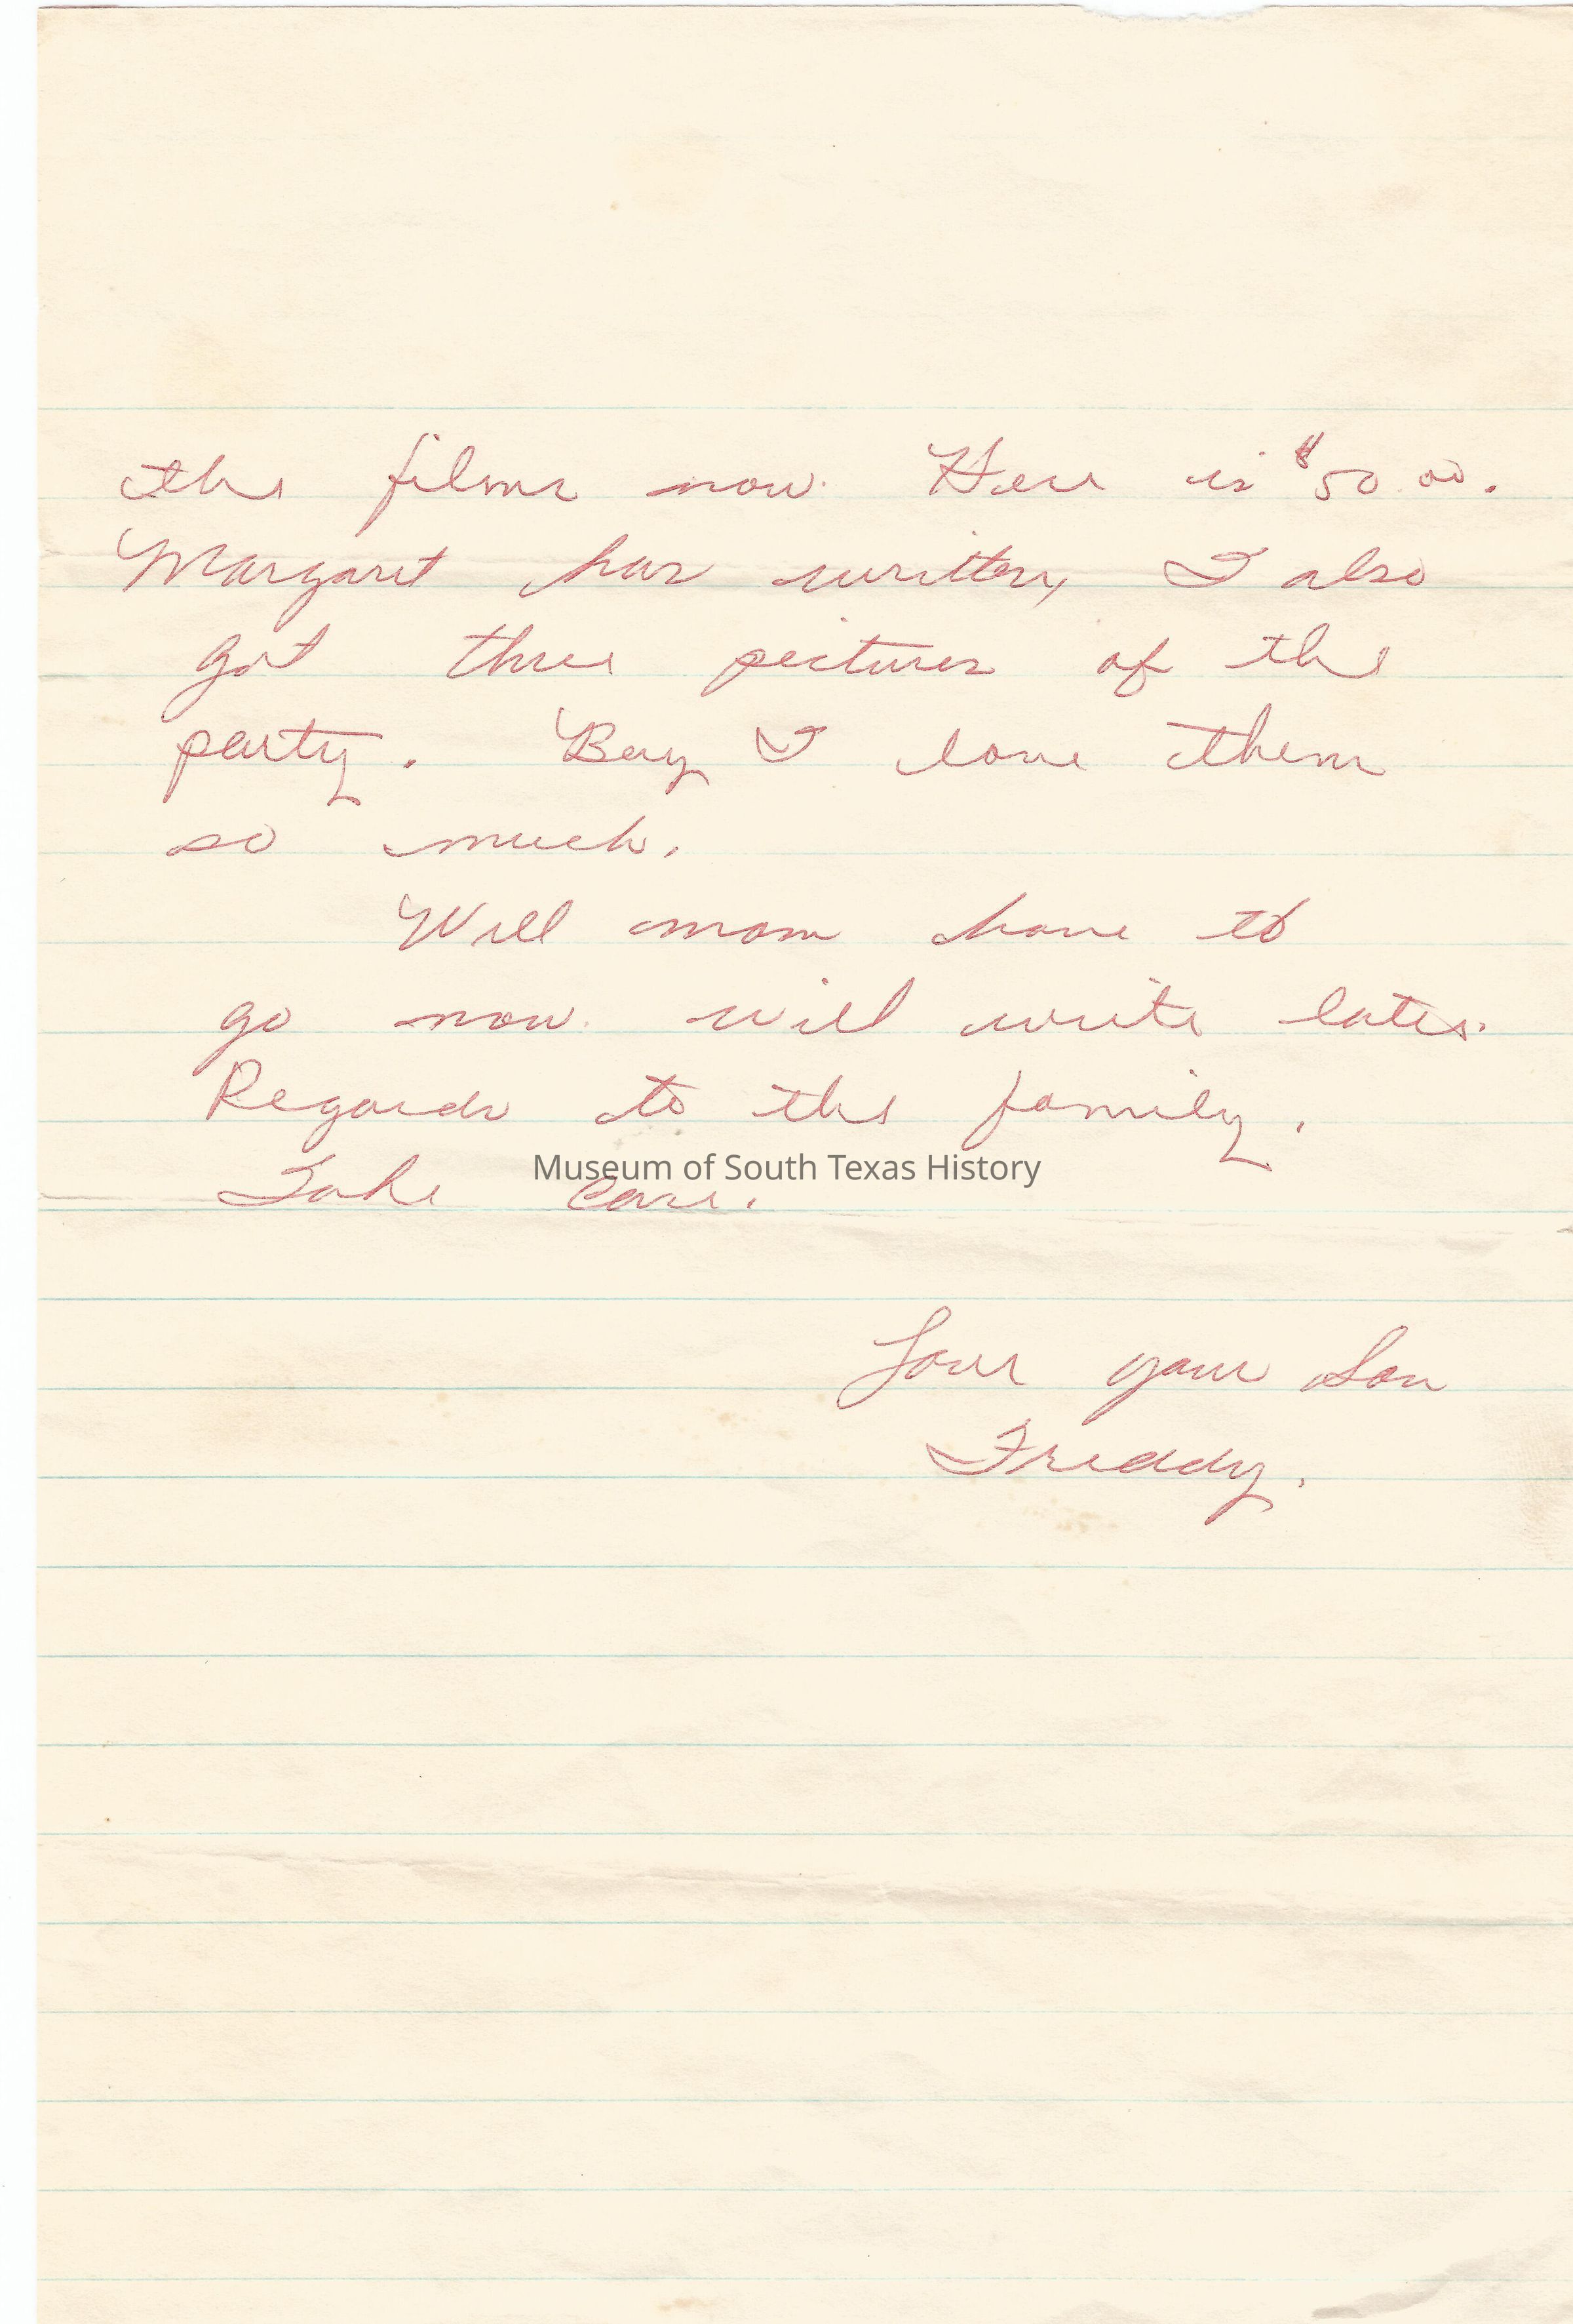 the films now. Here is $50.00.
Margaret has written, I also
got three pictures of the
party. Boy I love them
so much.
Will mom have to
go now. will write later.
Regards to the family.
Museum of South Texas History
Take care.
Love your Son
Freddy.